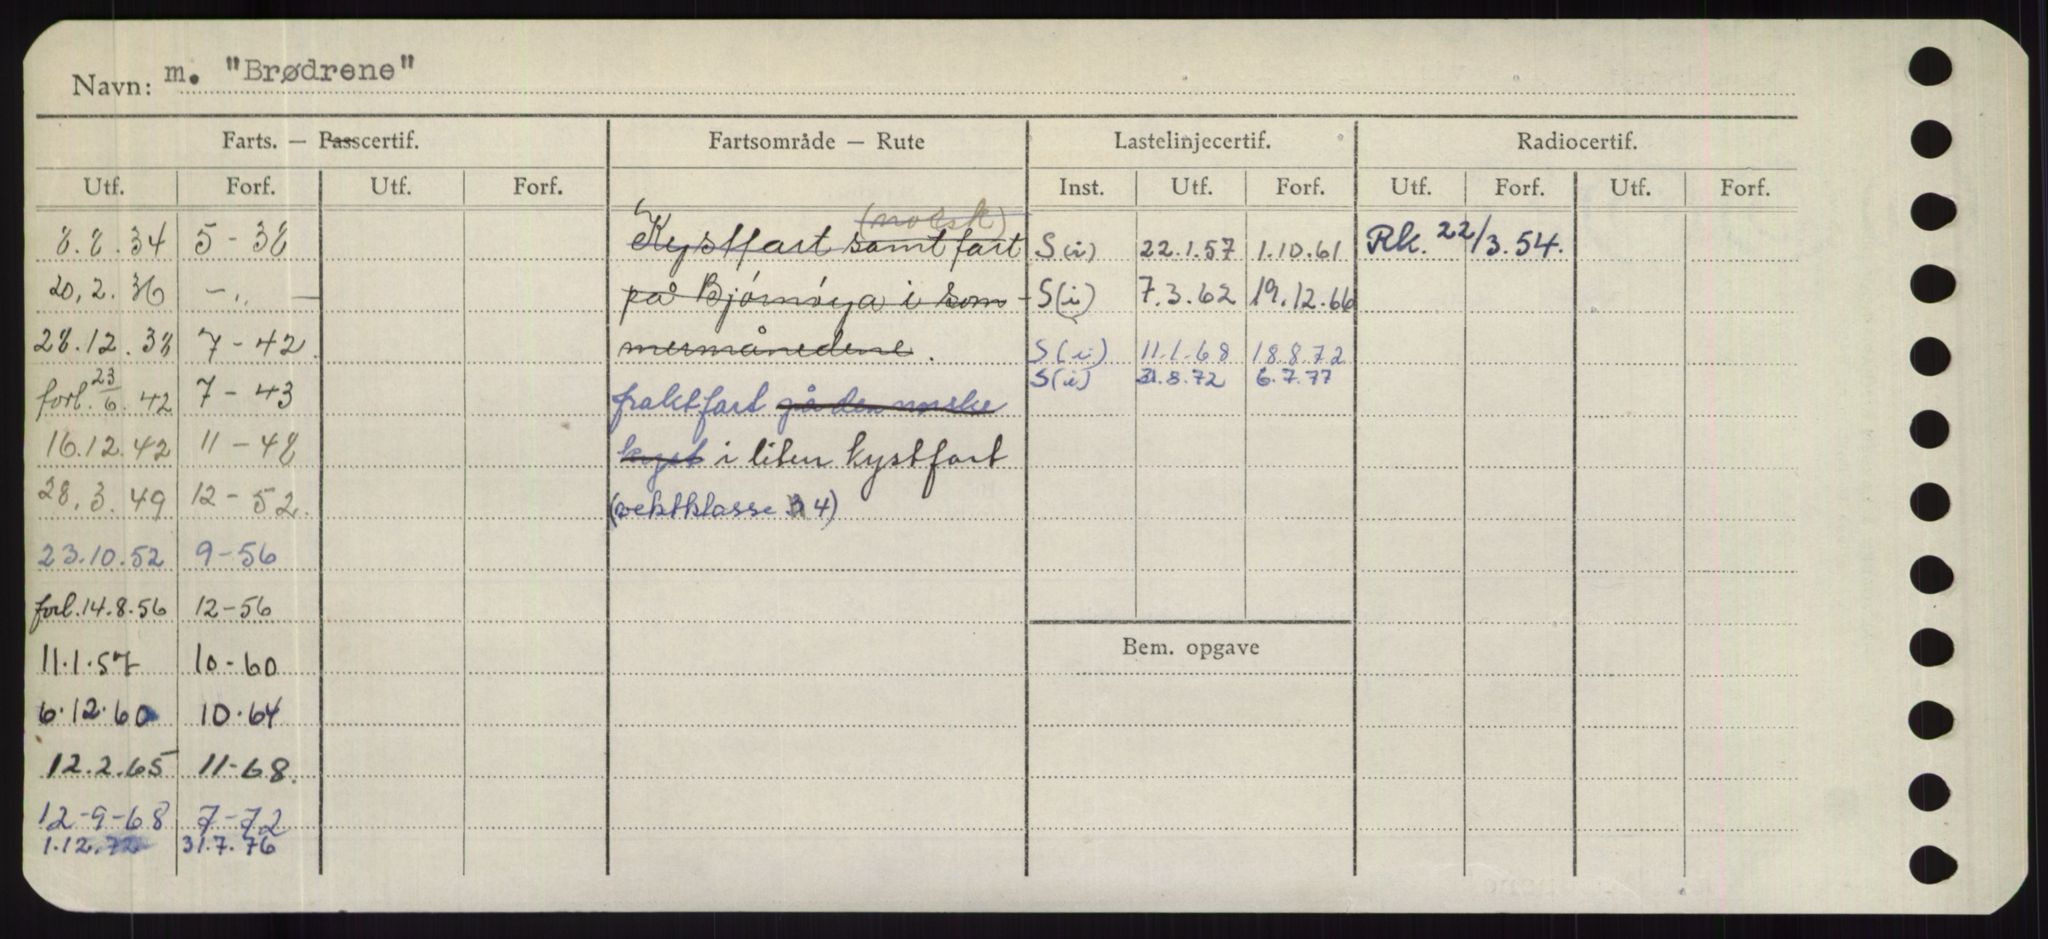 Navn: m. "Brødrene"
Farts. — Passcertif. Fartsområde — Rute Lastelinjecertif. Radiocertif.
Utf. Forf. Utf. Forf. Inst. Utf. Forf. Utf. Forf. Utf. Forf.
(norsk)
8.8.34 5-38 Kystfart samt fart S(i) 22.1.57 1.10.61 Rk. 22/3.54.
20.2.36 -"- på Bjørnøya i som- S(i) 7.3.62 19.12.66
28.12.38 7-42. mermånedene. S(i) 11.1.68 18.8.72
S(i) 31.8.72 6.7.77
forl. 23/6.42 7-43 fraktfart på den norske
16.12.42 11-48 kyst i liten kystfart
28.3.49 12-52. (vektklasse 4)
23.10.52 9-56
forl. 14.8.56 12-56
11.1.57 10-60 Bem. opgave
6.12.60 10.64
12.2.65 11-68.
12-9-68 7-72
1.12.72 31.7.76